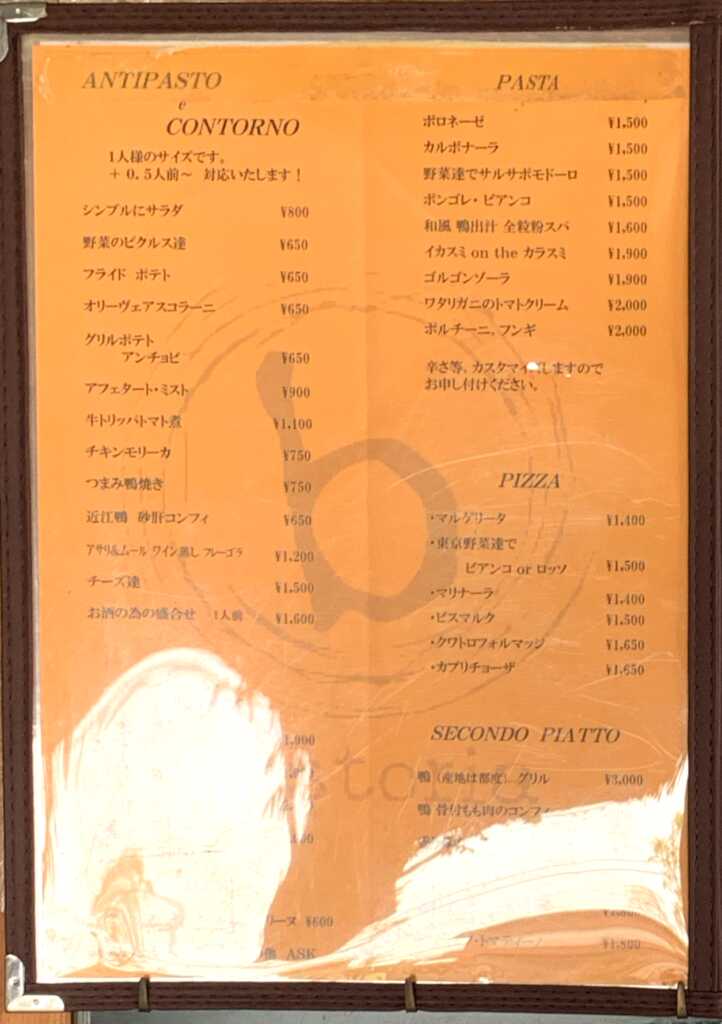 ANTIPASTO
e
CONTORNO
1人様のサイズです。
+ 0.5人前～ 対応いたします！
シンプルにサラダ ¥800
野菜のピクルス達 ¥650
フライド ポテト ¥650
オリーヴェアスコラーニ ¥650
グリルポテト
アンチョビ ¥650
アフェタート・ミスト ¥900
牛トリッパトマト煮 ¥1,100
チキンモリーカ ¥750
つまみ鴨焼き ¥750
近江鴨 砂肝コンフィ ¥650
アサリ&ムール ワイン蒸し フレーゴラ ¥1,200
チーズ達 ¥1,500
お酒の為の盛合せ 1人前 ¥1,600
リーヌ ¥600
ASK
PASTA
ボロネーゼ ¥1,500
カルボナーラ ¥1,500
野菜達でサルサポモドーロ ¥1,500
ボンゴレ・ビアンコ ¥1,500
和風 鴨出汁 全粒粉スパ ¥1,600
イカスミ on the カラスミ ¥1,900
ゴルゴンゾーラ ¥1,900
ワタリガニのトマトクリーム ¥2,000
ポルチーニ、フンギ ¥2,000
辛さ等、カスタマイズしますので
お申し付けください。
PIZZA
・マルゲリータ ¥1,400
・東京野菜達で
ビアンコ or ロッソ ¥1,500
・マリナーラ ¥1,400
・ビスマルク ¥1,500
・クワトロフォルマッジ ¥1,650
・カプリチョーザ ¥1,650
SECONDO PIATTO
鴨 (産地は都度) グリル ¥3,000
鴨 骨付もも肉のコンフィ
・トマティーノ ¥1,800